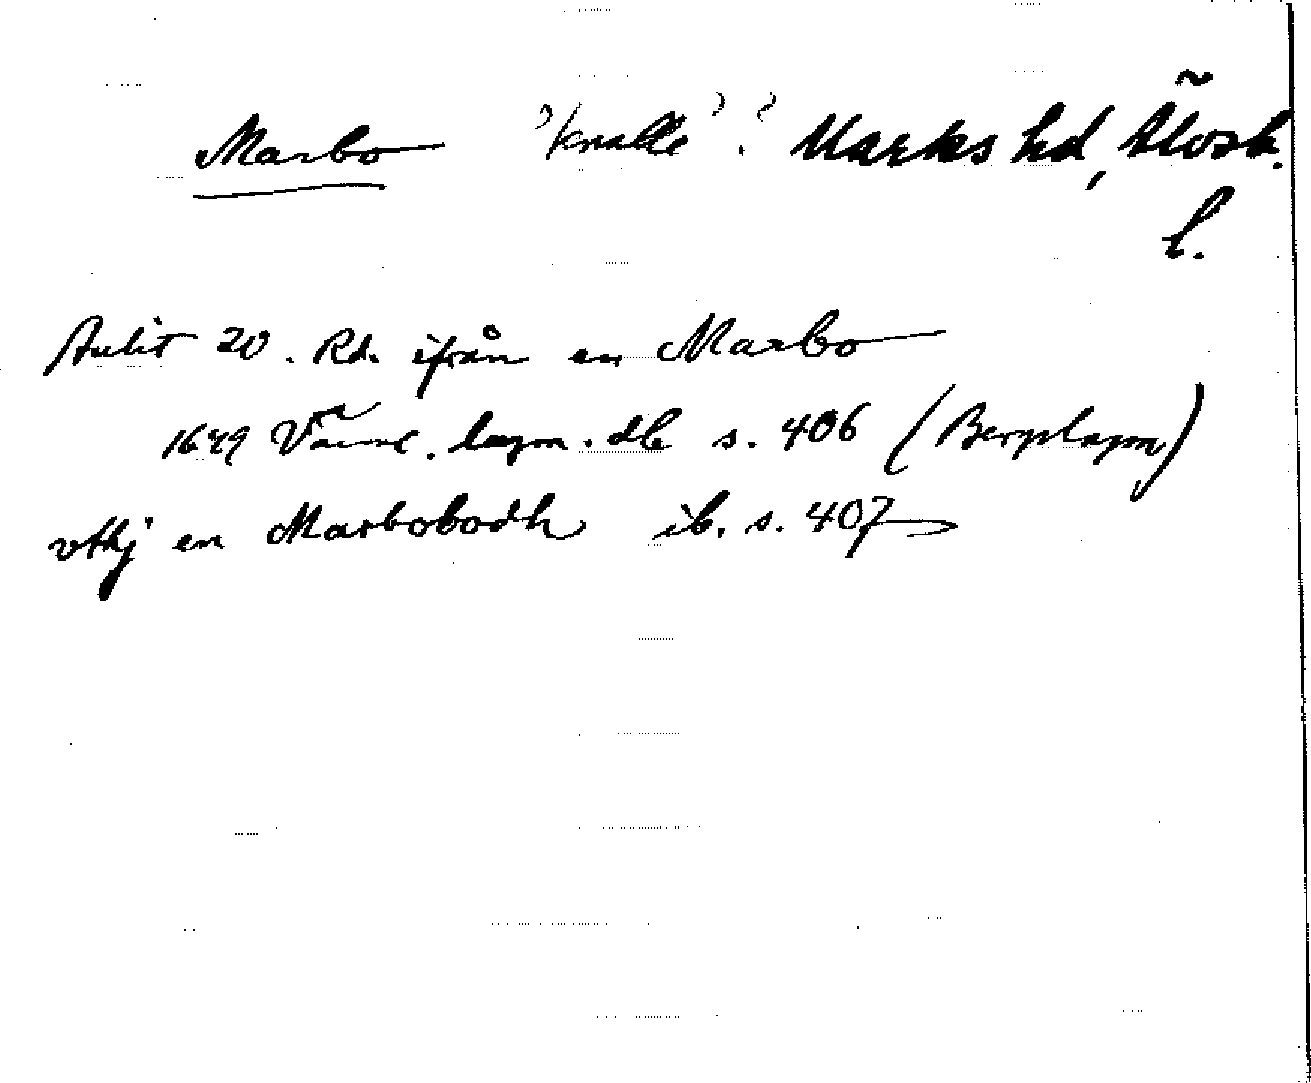 Marbo 'knalle'? Marks hd, Älvsb.
l.
Stulit 20. Rd. ifrån en Marbo
1649 Värml. lagm. db s. 406 (Bergslagen)
vthj en Marbobodh ib. s. 407